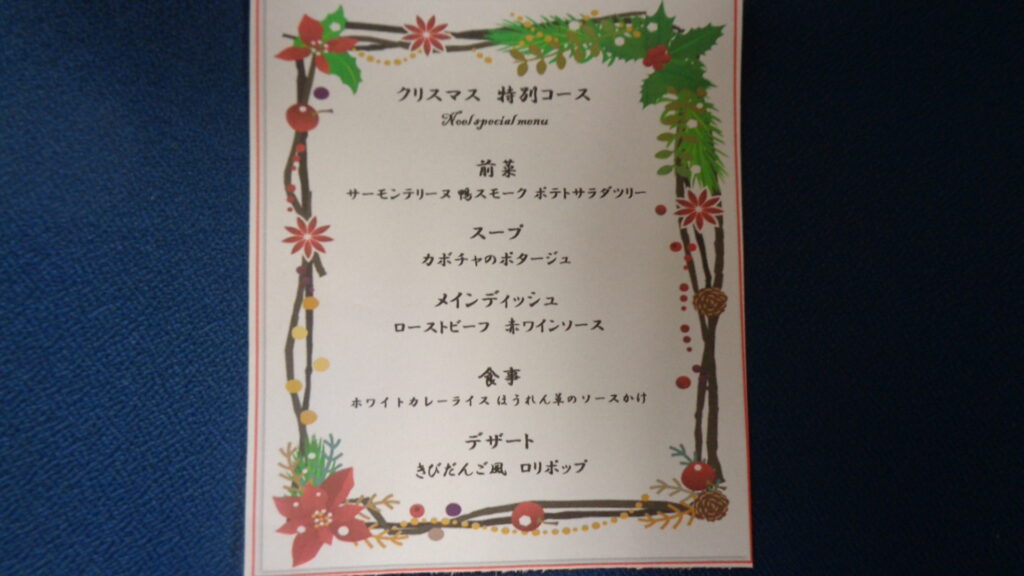 クリスマス 特別コース
Noel special menu
前菜
サーモンテリーヌ 鴨スモーク ポテトサラダツリー
スープ
カボチャのポタージュ
メインディッシュ
ローストビーフ 赤ワインソース
食事
ホワイトカレーライス ほうれん草のソースかけ
デザート
きびだんご風 ロリポップ